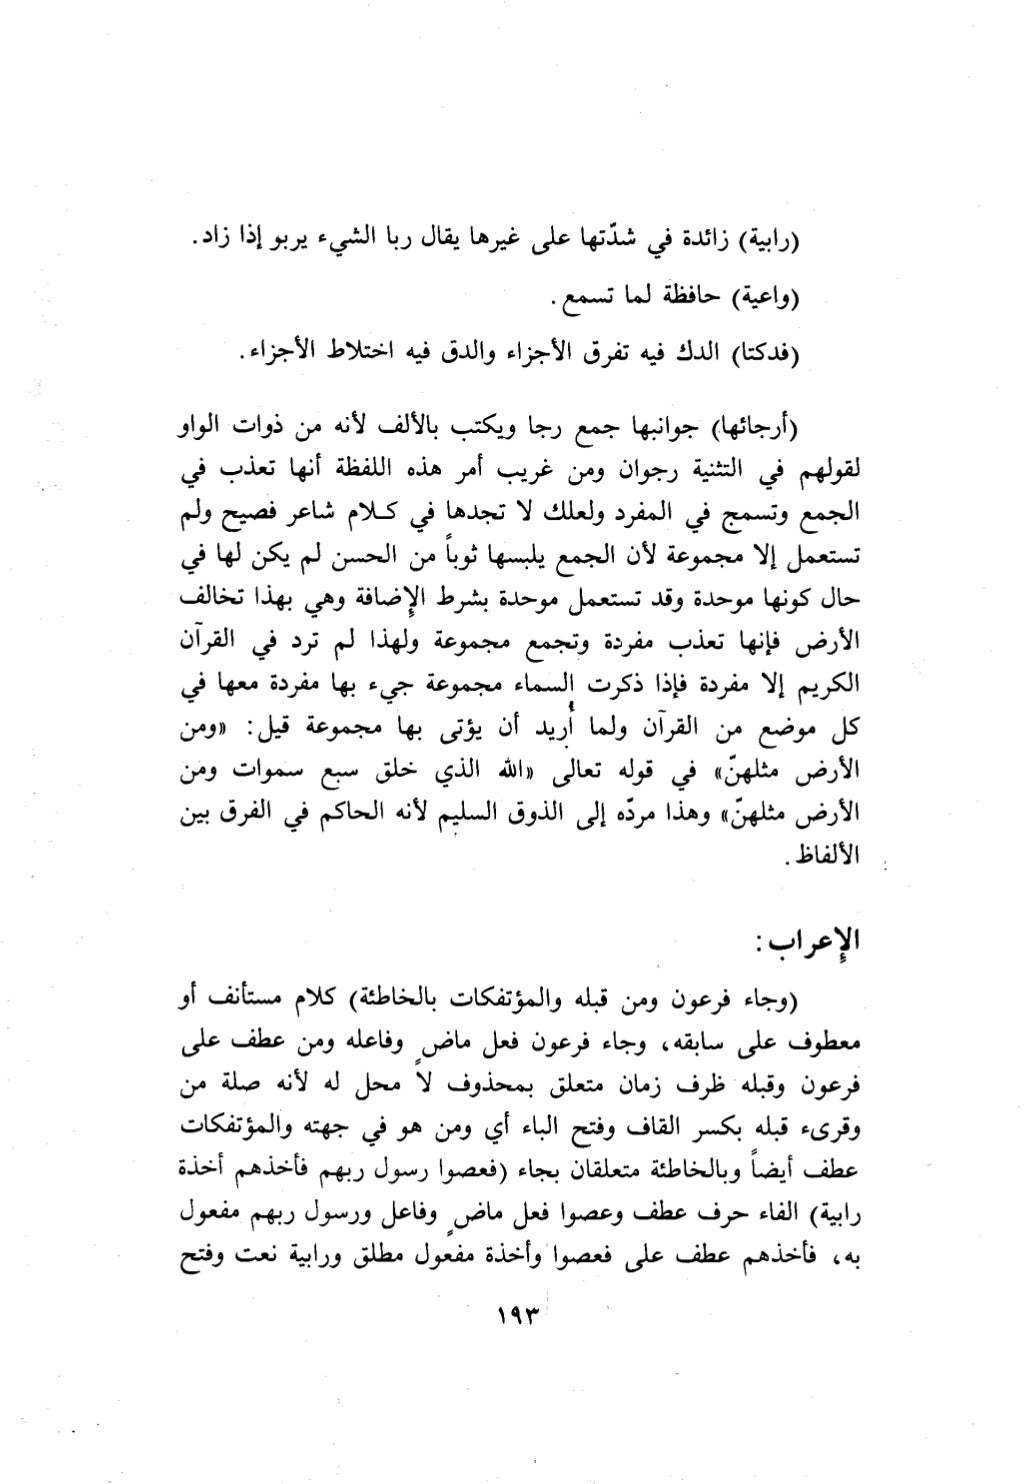 (رابية) زائدة في شدّتها على غيرها يقال ربا الشيء يربو إذا زاد.
(واعية) حافظة لما تسمع.
(فدكتا) الدك فيه تفرق الأجزاء والدق فيه اختلاط الأجزاء.
(أرجائها) جوانبها جمع رجا ويكتب بالألف لأنه من ذوات الواو
لقولهم في التثنية رجوان ومن غريب أمر هذه اللفظة أنها تعذب في
الجمع وتسمج في المفرد ولعلك لا تجدها في كلام شاعر فصيح ولم
تستعمل إلا مجموعة لأن الجمع يلبسها ثوباً من الحسن لم يكن لها في
حال كونها موحدة وقد تستعمل موحدة بشرط الإضافة وهي بهذا تخالف
الأرض فإنها تعذب مفردة وتجمع مجموعة ولهذا لم ترد في القرآن
الكريم إلا مفردة فإذا ذكرت السماء مجموعة جيء بها مفردة معها في
كل موضع من القرآن ولما أُريد أن يؤتى بها مجموعة قيل: «ومن
الأرض مثلهنّ» في قوله تعالى «الله الذي خلق سبع سموات ومن
الأرض مثلهنّ» وهذا مردّه إلى الذوق السليم لأنه الحاكم في الفرق بين
الألفاظ.
الإعراب:
(وجاء فرعون ومن قبله والمؤتفكات بالخاطئة) كلام مستأنف أو
معطوف على سابقه، وجاء فرعون فعل ماضٍ وفاعله ومن عطف على
فرعون وقبله ظرف زمان متعلق بمحذوف لا محل له لأنه صلة من
وقرىء قبله بكسر القاف وفتح الباء أي ومن هو في جهته والمؤتفكات
عطف أيضاً وبالخاطئة متعلقان بجاء (فعصوا رسول ربهم فأخذهم أخذة
رابية) الفاء حرف عطف وعصوا فعل ماضٍ وفاعل ورسول ربهم مفعول
به، فأخذهم عطف على فعصوا وأخذة مفعول مطلق ورابية نعت وفتح
١٩٣